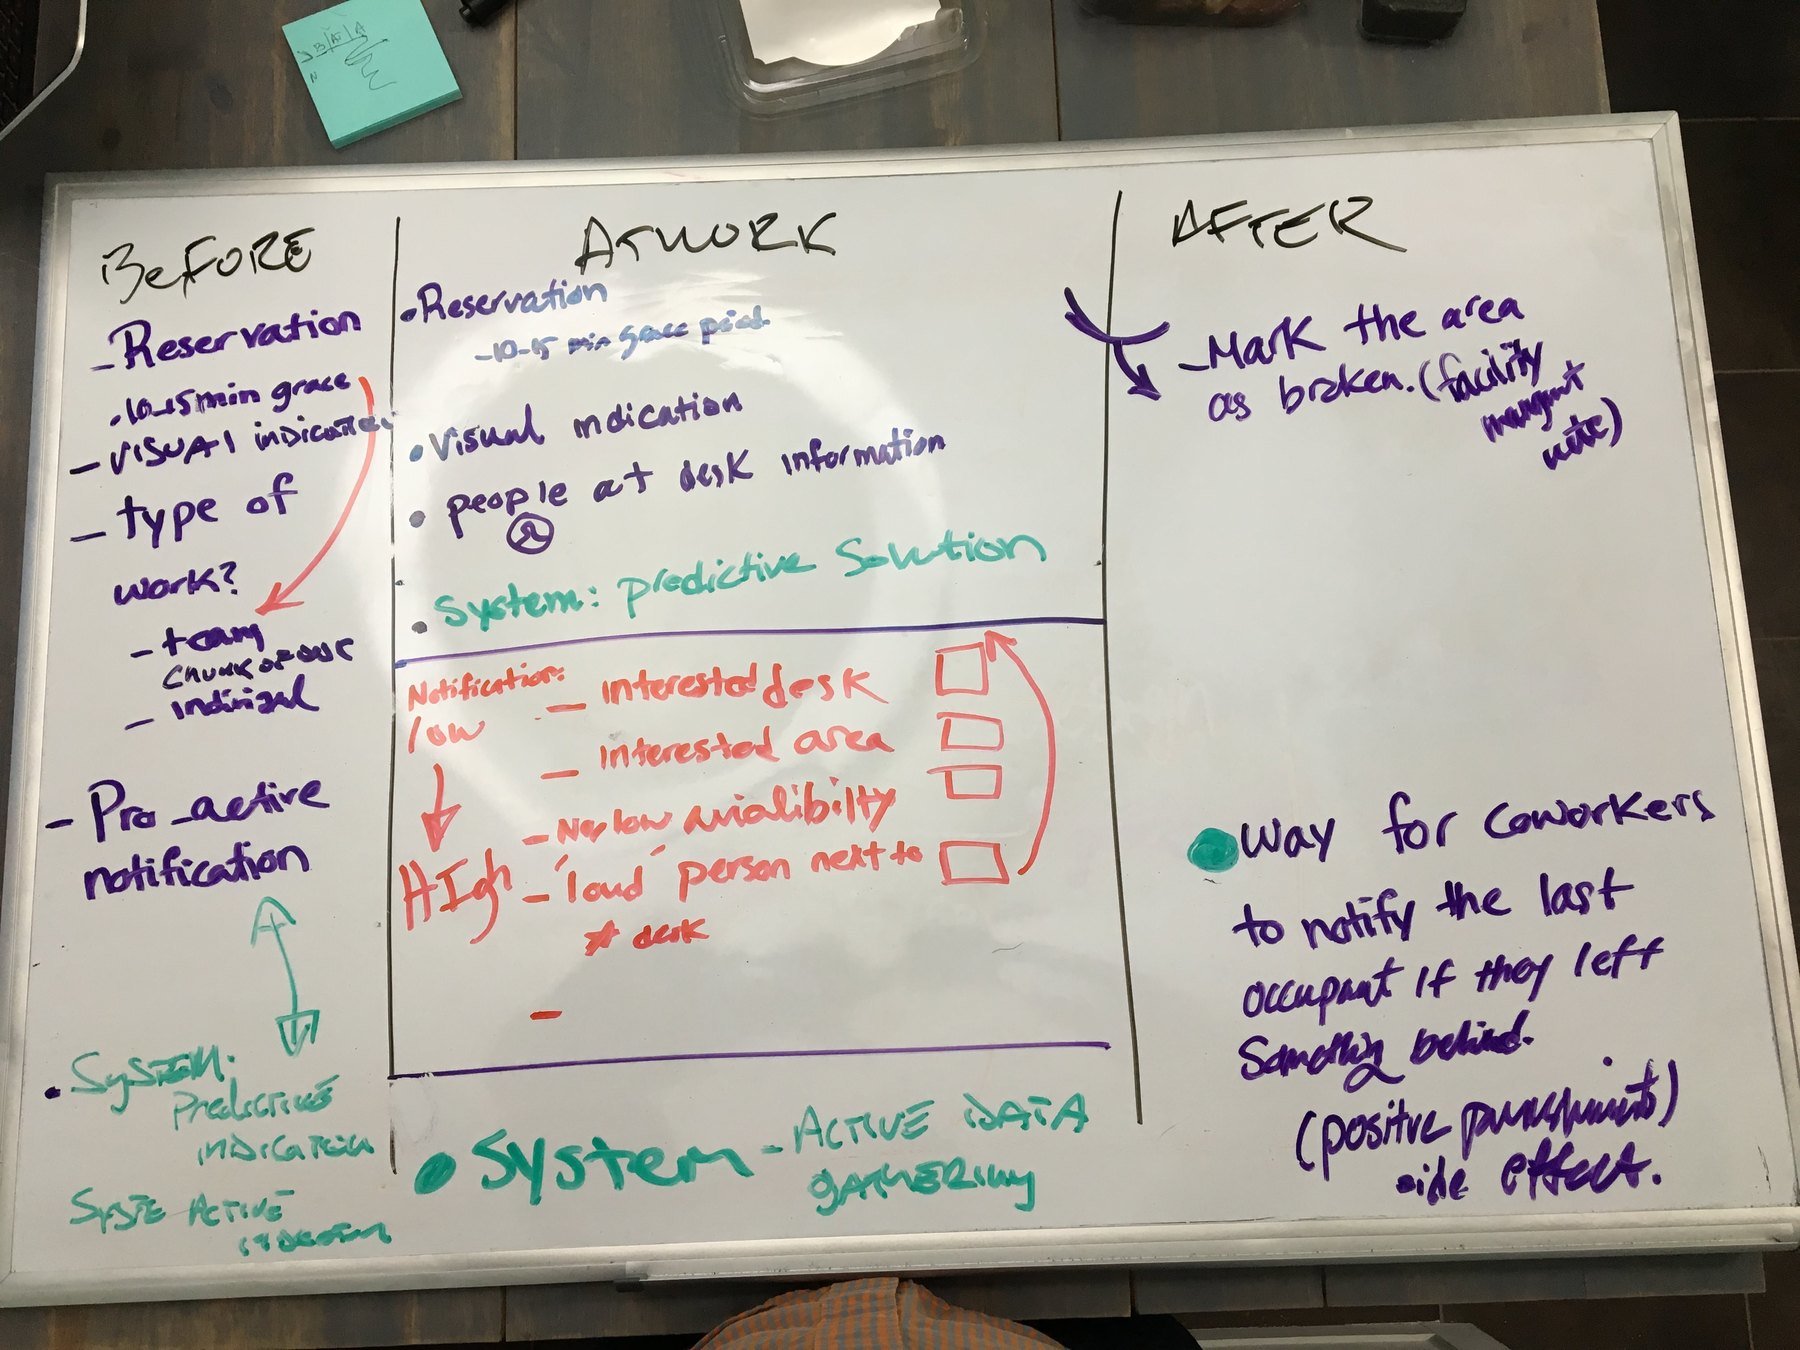 BeFORE
- Reservation
. 10-15 min grace
- VISUAL indication
- type of
work?
- team
chunk of
-
- Pro-active
notification
. SYSTEM:
PREDICTIVE
indication
SYSTE ACTIVE
ATWORK
. Reservation
-10-15 min grace
. Visual indication
. people at desk information
. System: predictive Solution
Notification:
low
HIGH
- interested desk
- interested area
- low avialibilty
- 'loud' person next to
desk
-
. System - ACTIVE DATA
GATHERING
AFTER
- Mark the area
as broken. (facility
note)
. Way for coworkers
to notify the last
occupant if they left
Something behind.
(positive punishments)
side effect.
B